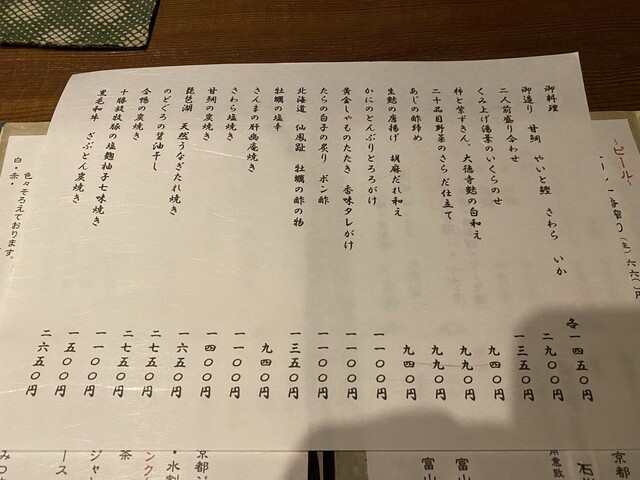 ～ビール～
御料理
御造り 甘鯛 やいと鰹 さわら いか 各一四五〇円
二人前盛り合わせ 二九〇〇円
くみ上げ湯葉のいくらのせ 一三五〇円
柿と菊ずきん、大徳寺麩の白和え 九四〇円
二十品目野菜のさらだ仕立て 九九〇円
あじの酢締め 九九〇円
生麩の唐揚げ 胡麻だれ和え 九四〇円
かにのとんぶりとろろがけ 一一〇〇円
黄金しゃものたたき 香味タレがけ 一一〇〇円
たらの白子の炙り ポン酢 一一〇〇円
北海道 仙鳳趾 牡蠣の酢の物 一三五〇円
牡蠣の塩辛 九四〇円
さんまの肝幽庵焼き 一一〇〇円
さわら塩焼き 一四〇〇円
甘鯛の炭焼き 一六五〇円
琵琶湖 天然うなぎたれ焼き 二七五〇円
のどぐろの醤油干し 二七五〇円
合鴨の炭焼き 一一〇〇円
十勝放牧豚の塩麹柚子七味焼き 一五〇〇円
黒毛和牛 ざぶとん炭焼き 二六五〇円
色々そろえております。
白・赤・
京都
用意致
富山
富山
京都
・水割
ンク
茶
ジャ
ース
みつ